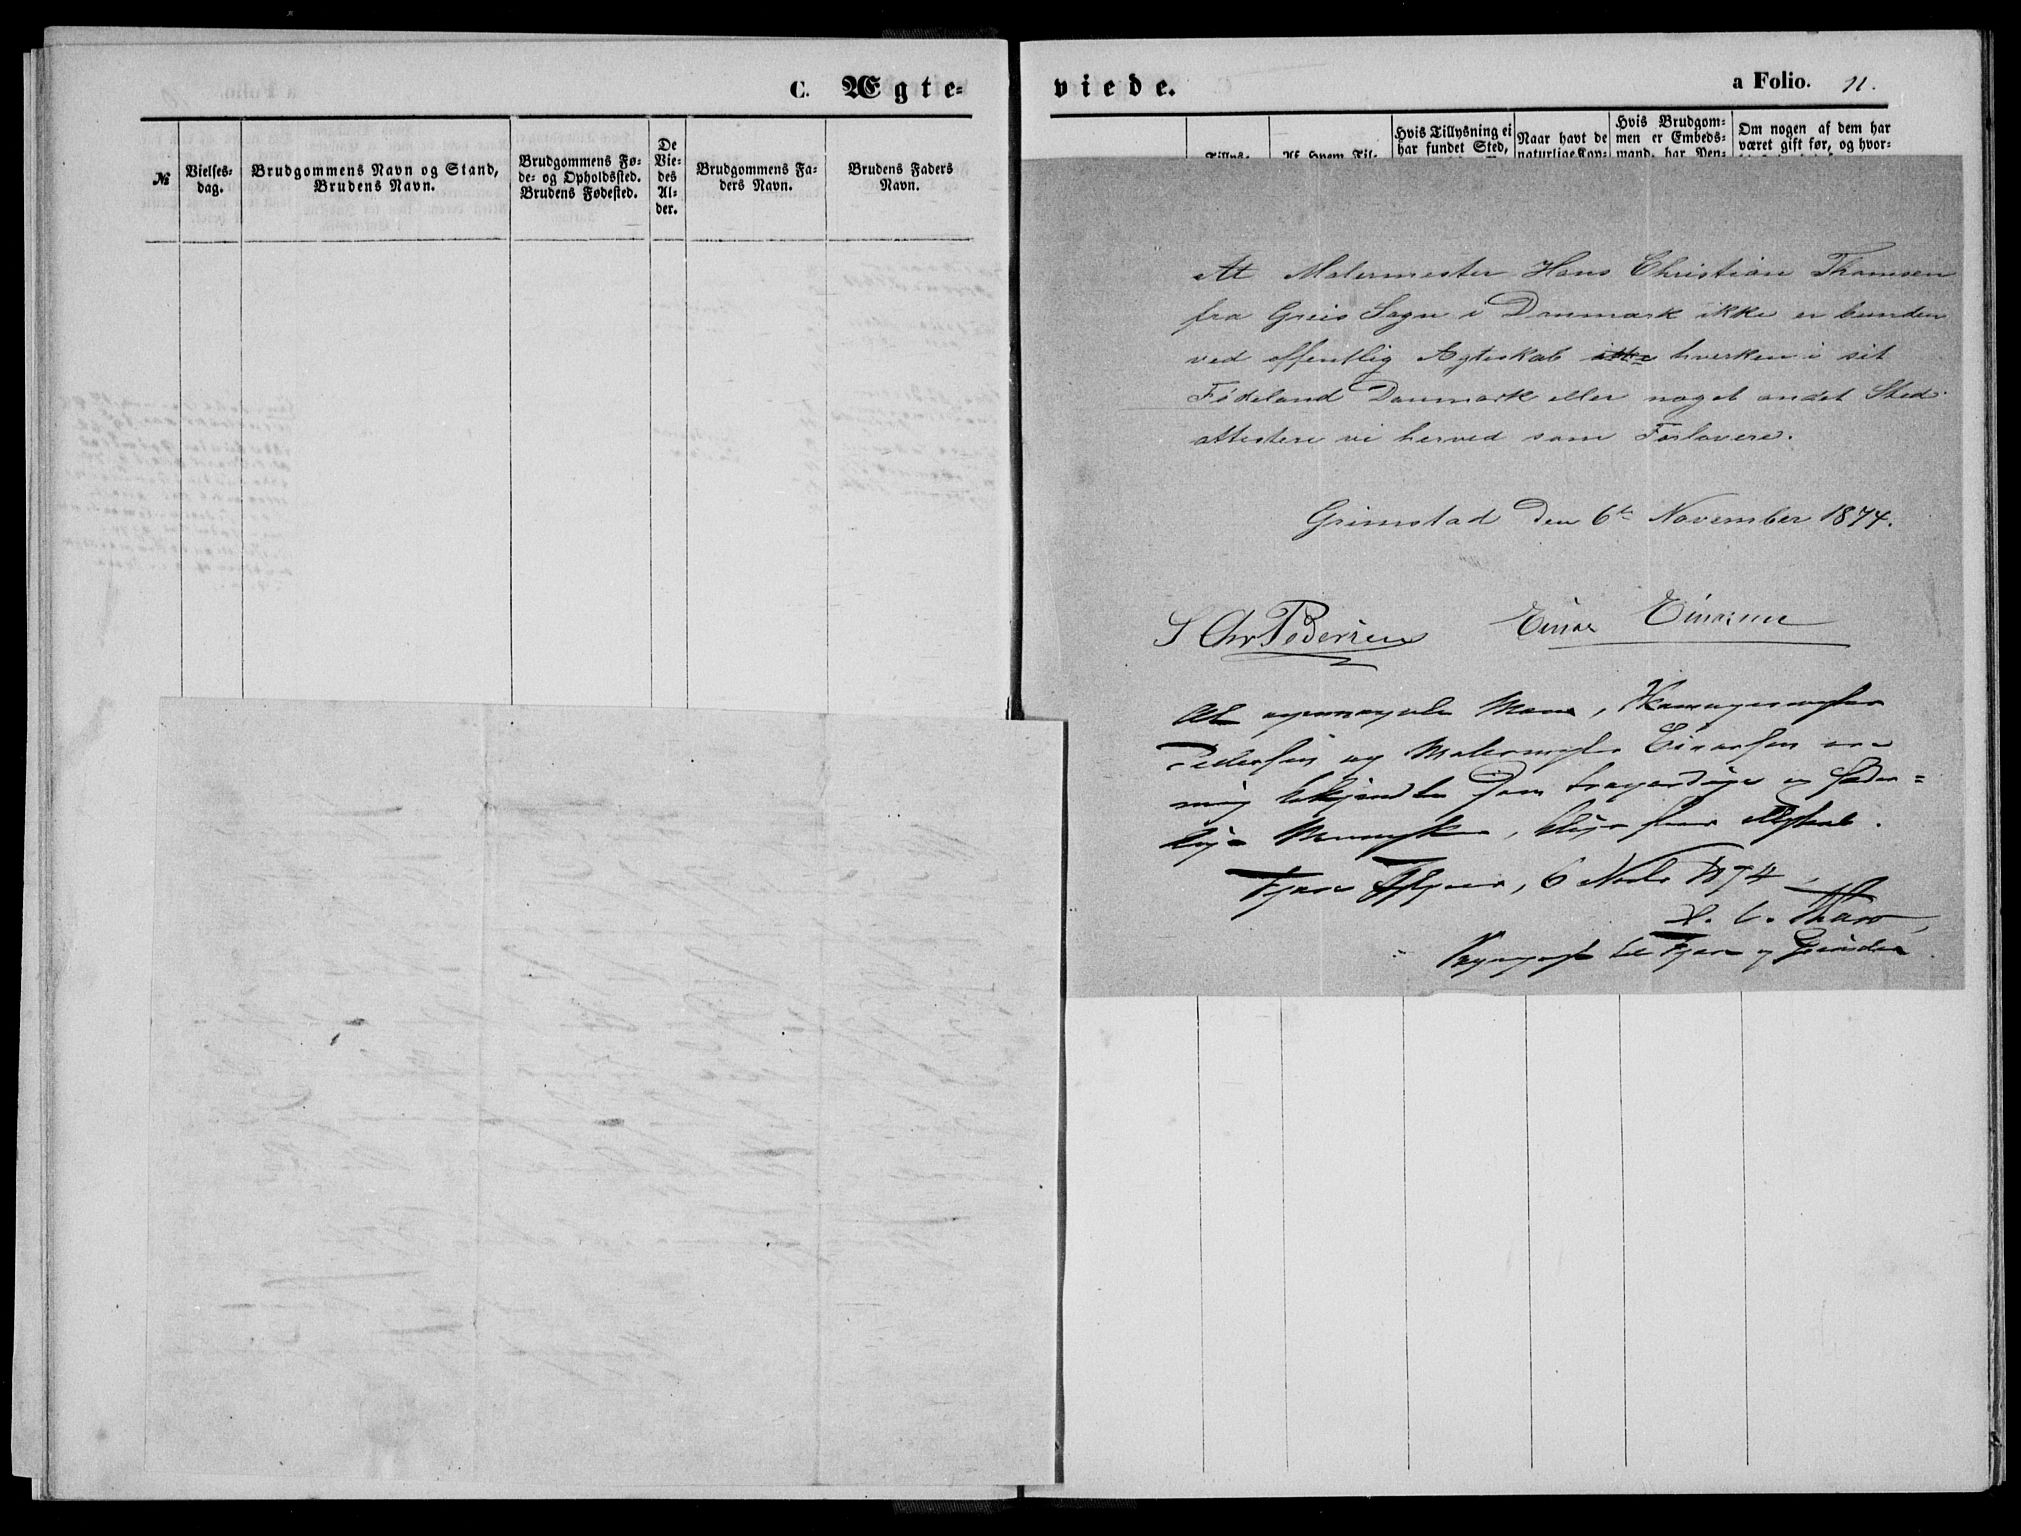 C. Ægte-
№
Vielses-
dag.
Brudgommens Navn og Stand,
Brudens Navn.
Brudgommens Fø-
de- og Opholdssted.
Brudens Fødested.
De
Vie-
des
Al-
der.
Brudgommens Fa-
ders Navn.
Brudens Faders
Navn.
viede.
a Folio. 11.
Hvis Tillysning ei
har fundet Sted,
Naar havt de
naturlige Kop-
Hvis Brudgom-
men er Embeds-
mand, har Pen-
Om nogen af dem har
været gift før, og hvor-
Tillys-
Af hvem Til-
At Malermester Hans Christian Thomsen
fra Greis Sogn i Danmark ikke er bunden
ved offentlig Ægteskab hverken i sit
Fødeland Danmark eller noget andet Sted
attestere vi herved som Forlovere.
Grimstad den 6te November 1874.
S Chr Pedersen Einar Einarsen
At ovennævnte Mænd,
Pedersen og Malermester Einarsen ere
mig bekjendte som troværdige og hæder-
lige Mennesker,
Fjære 6 Novbr 1874
til Fjære og